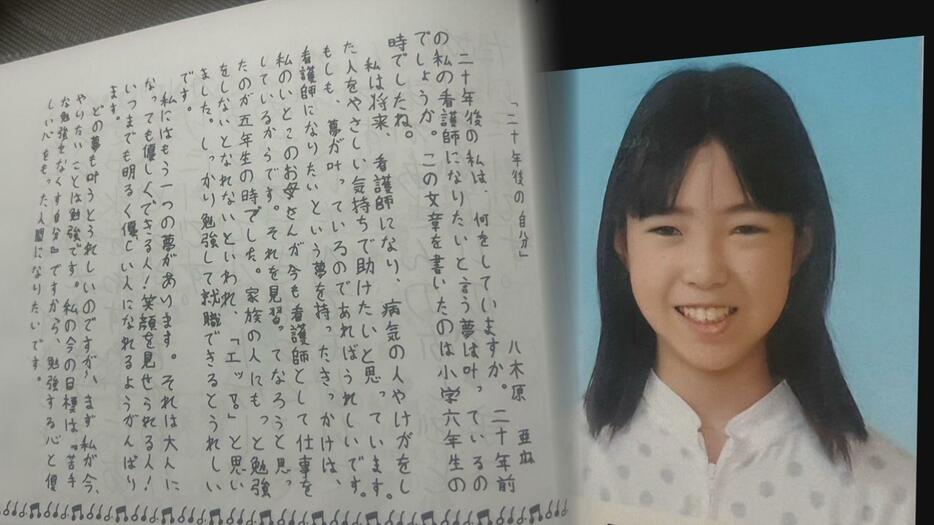 「二十年後の自分」
八木原 亜麻
二十年後の私は、何をしていますか。二十年前
の私の看護師になりたいと言う夢は叶っているの
でしょうか。この文章を書いたのは小学六年生の
時でしたね。
私は将来、看護師になり、病気の人やけがをし
た人をやさしい気持ちで助けたいと思っています。
もしも、夢が叶っているのであればうれしいです。
看護師になりたいという夢を持ったきっかけは、
私のいとこのお母さんが今も看護師として仕事を
しているからです。それを見習ってなろうと思っ
たのが五年生の時でした。家族の人にもっと勉強
をしないとなれないといわれ、「エッ!?」と思い
ました。しっかり勉強して就職できるとうれしい
です。
私にはもう一つの夢があります。それは大人に
なっても優しくできる人!笑顔を見せられる人!
いつまでも明るく優しい人になれるようがんばり
ます。
どの夢も叶うとうれしいのですが、まず私が今、
やりたいことは勉強です。私の今の目標は『苦手
な勉強をなくす自分』ですから、勉強する心と優
しい心をもった人間になりたいです。